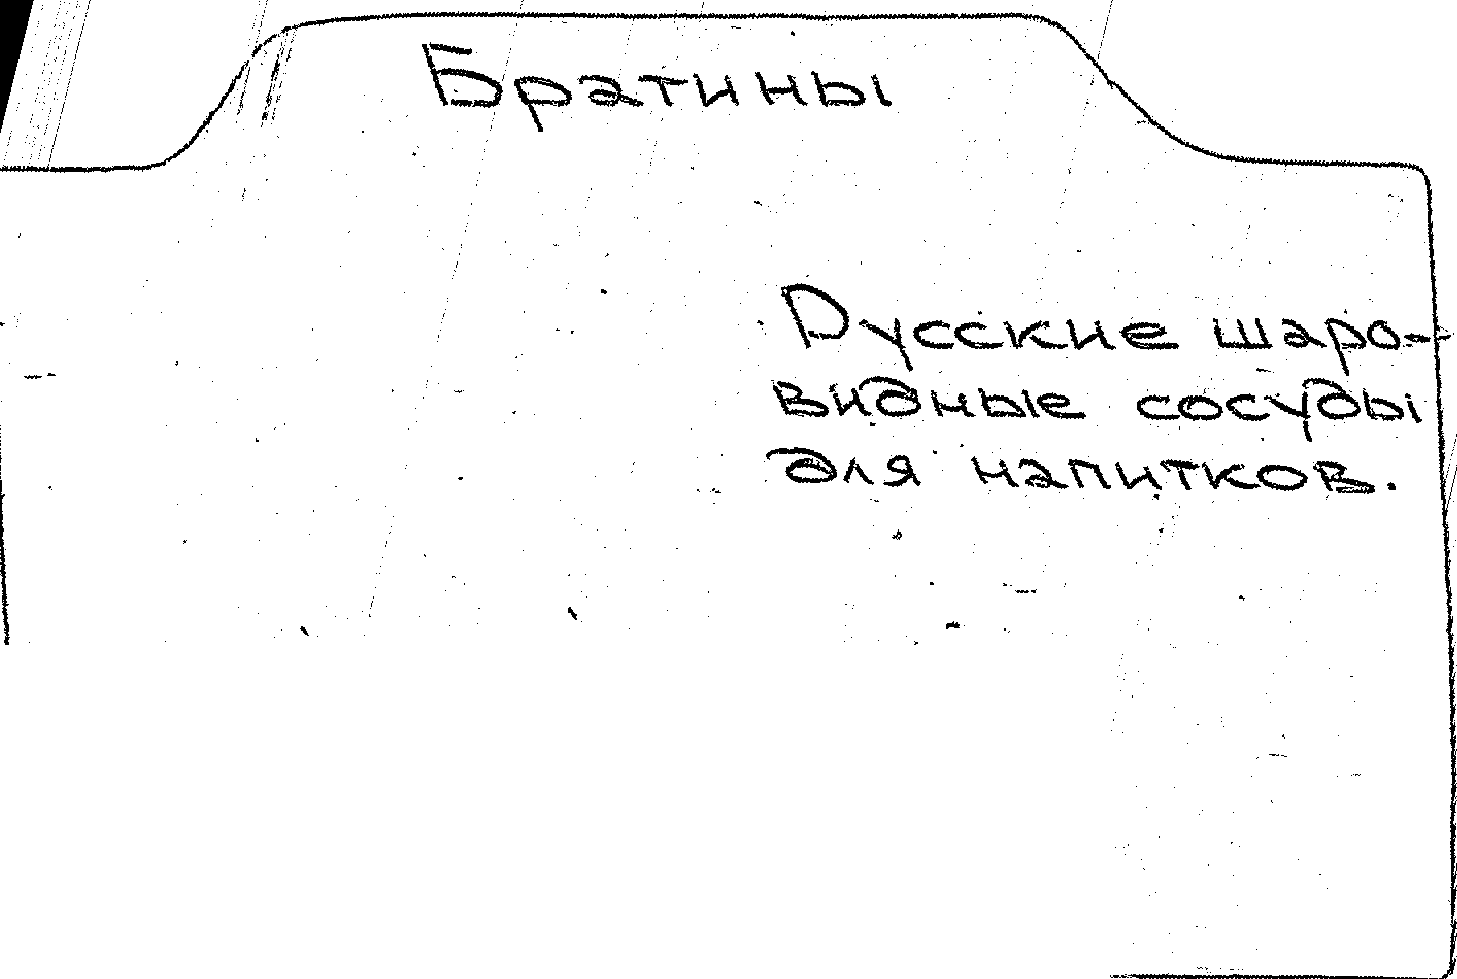 Братины
Русские шаро-
видные сосуды
для напитков.